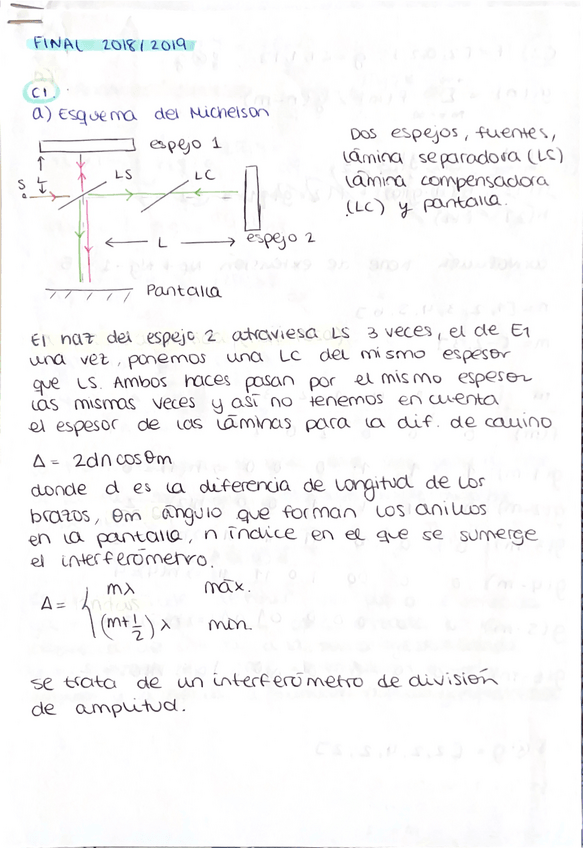 FINAL 2018/2019
C1
a) Esquema del Michelson
espejo 1
Dos espejos, fuentes,
lámina separadora (LS)
lámina compensadora
(LC) y pantalla.
S
L
LS
LC
L
espejo 2
Pantalla
El haz del espejo 2 atraviesa LS 3 veces, el de E1
una vez, ponemos una LC del mismo espesor
que LS. Ambos haces pasan por el mismo espesor
las mismas veces y así no tenemos en cuenta
el espesor de las láminas para la dif. de camino
Δ = 2dn cosθm
donde d es la diferencia de longitud de los
brazos, θm ángulo que forman los anillos
en la pantalla, n índice en el que se sumerge
el interferómetro.
Δ = { mλ máx.
(m+1/2) λ min.
se trata de un interferómetro de división
de amplitud.